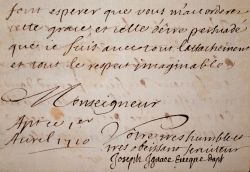 font esperer que vous m'accorderez
cette grace, et celle d'être persuadé
que je suis avec tout l'attachement
et tout le respect imaginable
Monseigneur
Apt ce 1er
Avril 1710
Votre tres humble et
tres obeissant serviteur
Joseph Ignace Eveque d'Apt